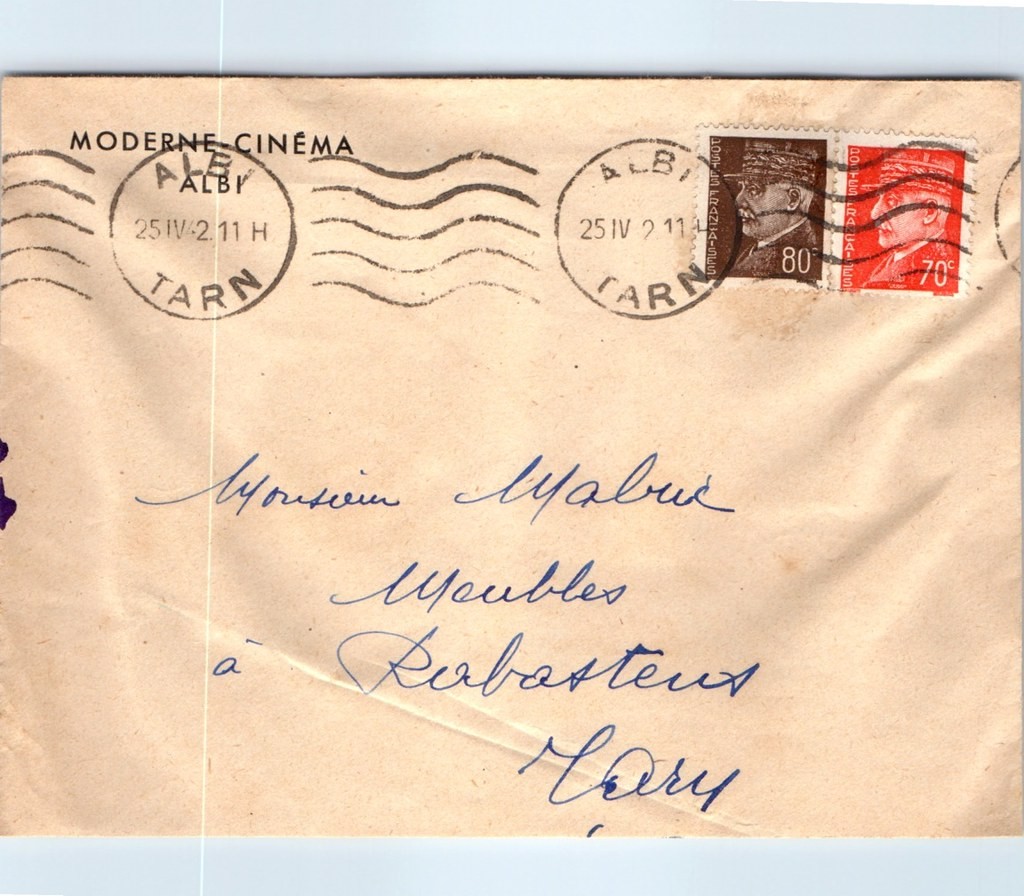 MODERNE-CINÉMA
ALBI
ALBI
25 IV 2 11 H
TARN
ALBI
25 IV 2 11 H
TARN
POSTES FRANÇAISES
80c
POSTES FRANÇAISES
70c
Monsieur Malric
Meubles
à Rabastens
Tarn